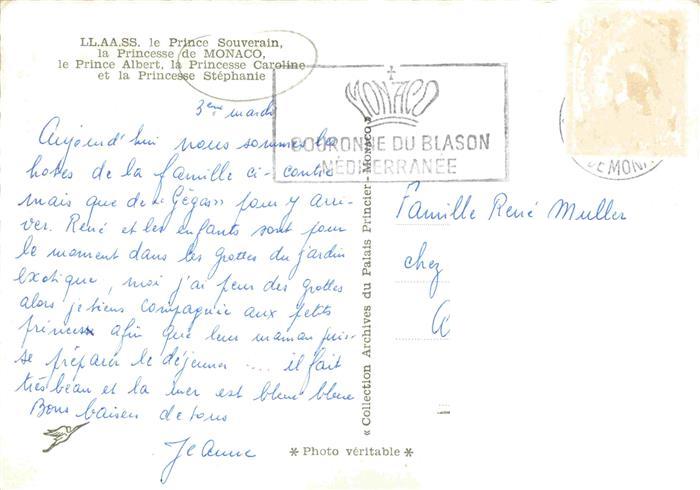 LL.AA.SS. le Prince Souverain,
la Princesse de MONACO,
le Prince Albert, la Princesse Caroline
et la Princesse Stéphanie
3ème mardi
Aujourd'hui nous sommes les
hotes de la famille ci-contre
mais que de "Gégas" pour y arri-
ver. René et les enfants sont pour
le moment dans les grottes du jardin
exotique, moi j'ai peur des grottes
alors je tiens compagnie aux petits
princes afin que leur maman puis-
se préparer le déjeuner .... il fait
très beau et la mer est bleue bleue
Bons baisers de tous
Jeanne
* Photo véritable *
« Collection Archives du Palais Princier - MONACO »
MONACO
COURONNE DU BLASON
MÉDITERRANÉE
DE MON
Famille René Muller
chez